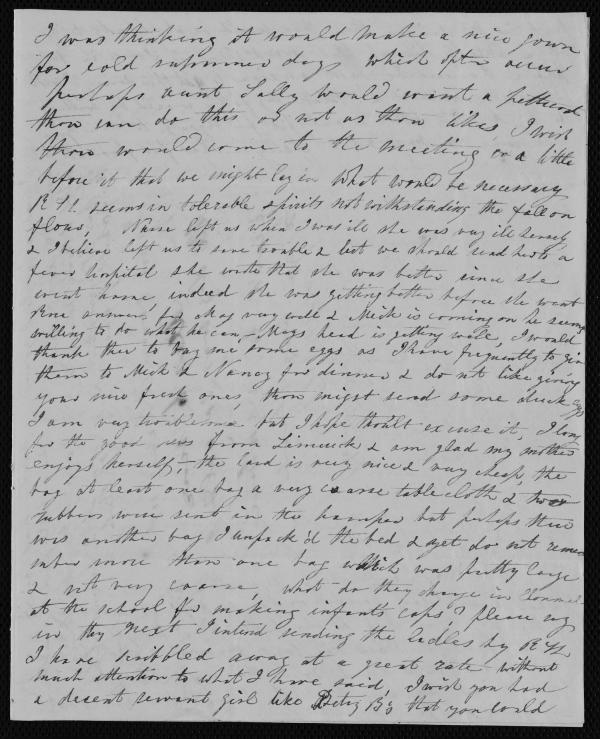 I was thinking it would make a nice gown
for cold summer days which often occur
perhaps aunt Sally would want a petticoat
thou can do this or not as thou likes, I wish
thou would come to the meeting or a little
before it that we might lay in what would be necessary
R seems in tolerable spirits notwithstanding the fall on
flour, Nurse left us when I was ill she was very ill herself,
& I believe left us to save trouble & lest we should send her to a
fever hospital she wrote that she was better since she
went home, indeed she was getting better before she went
answers for May very well & Mick is coming on he seems
willing to do what he can, - Megs head is getting well, I would
thank thee to buy me some eggs as I have frequently to give
them to Mick & Nancy for dinner & do not like giving
your nice fresh ones, thou might send some duck eggs
I am very troublesome but I hope thou'lt excuse it, I long
for the good from Limerick & am glad my mother
enjoys herself, - the lard is very nice & very cheap, the
bag at least one bag a very coarse table cloth & two
rubbers were sent in the hamper but perhaps there
was another bag I unpack'd the bed & yet do not remem
mber more than one bag which was pretty large
& not very coarse, what do they charge in Clonmel
at the school for making infants caps, please say
in thy next I intend sending the ladles by R
I have scribbled away at a great rate without
much attention to what I have said, I wish you had
a decent servant girl like Betsy that you could